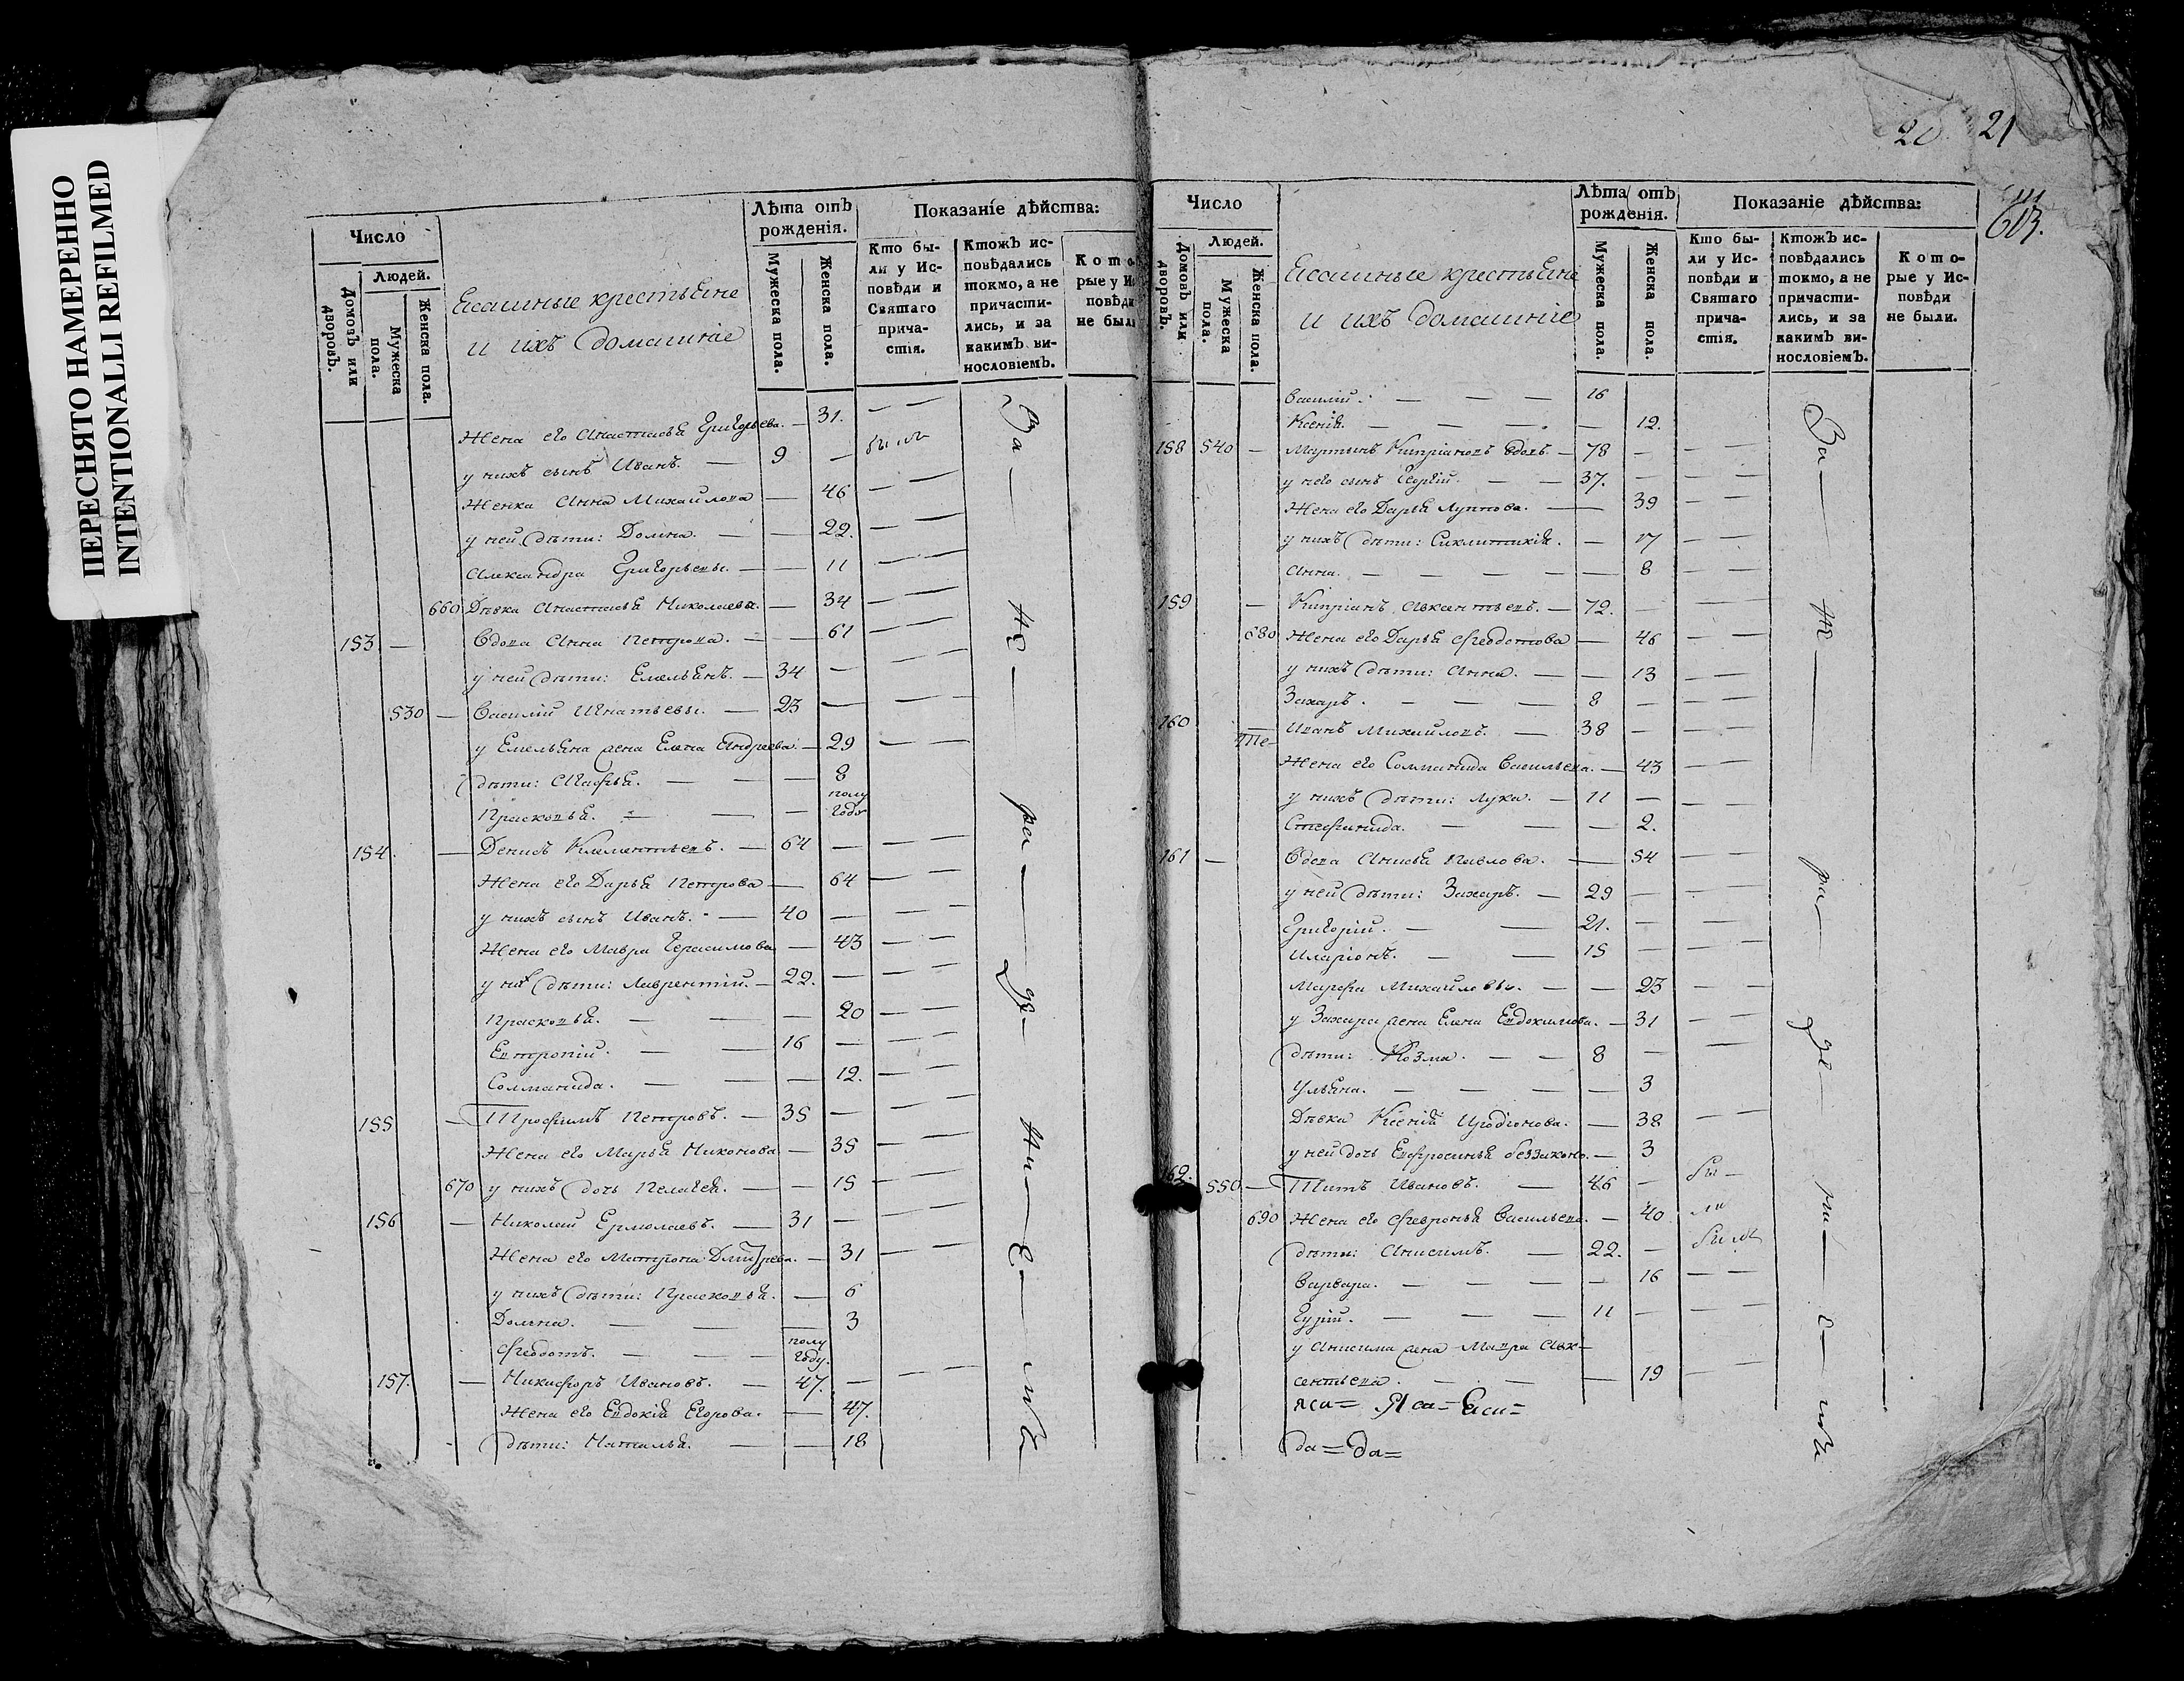 ПЕРЕСНЯТО НАМЕРЕННО
INTENTIONALLI REFILMED
Число
Людей.
Домовъ или дворовъ.
Мужеска пола.
Женска пола.
Ясашные крестьяне
и ихъ домашніе
Лѣта отъ рожденія.
Мужеска пола.
Женска пола.
Показаніе дѣйства:
Кто были у Исповѣди и Святаго причастія.
Ктожъ исповѣдались токмо, а не причастились, и за какимъ винословіемъ.
Кото
рые у И
повѣди
не был
Жена его Анастасья Григорьева. — 31.
у нихъ сынъ Иванъ. — 9 — были
Женка Анна Михайлова — 46
у ней дѣти: Домна. — 22.
Александра Григорьевы. — 11
660 Дѣвка Анастасья Николаева. — 34
153 — Вдова Анна Петрова. — 61
у ней дѣти: Емельянъ. — 34 —
530 — Василій Игнатьевы. — 23 —
у Емельяна жена Елена Андреева. — 29
дѣти: Агафья. — 8
Прасковья. — полу году
154. — Денисъ Климентьевъ. — 64 —
Жена его Дарья Петрова — 64
у нихъ сынъ Иванъ. — 40 —
Жена его Мавра Герасимова — 43
у них дѣти: Лаврентій. — 22. —
Прасковья. — 20
Евтропій. — 16 —
Соломанида. — 12.
155 — Трофимъ Петровъ. — 35 —
Жена его Марья Никонова — 35
670 у нихъ дочь Пелагея. — 15
156 — Николай Ермолаевъ. — 31 —
Жена его Матрона Дмитрева. — 31
у нихъ дѣти: Прасковья. — 6
Домна. — 3
Феодотъ. — полу году.
157. — Никифоръ Ивановъ. — 47. —
Жена его Евдокія Егорова. — 47.
дѣти: Наталья. — 18
За — не — ра — дѣ — ні — е — мъ
20. 21
613.
Число
Людей.
Домовъ или дворовъ.
Мужеска пола.
Женска пола.
Ясашные крестьяне
и ихъ домашніе
Лѣта отъ рожденія.
Мужеска пола.
Женска пола.
Показаніе дѣйства:
Кто были у Исповѣди и Святаго причастія.
Ктожъ исповѣдались токмо, а не причастились, и за какимъ винословіемъ.
Которые у Исповѣди не были.
Василій. — 16
Ксенія. — 12.
158 540 — Мартынъ Кипріановъ вдовъ. — 78 —
у него сынъ Георгій. — 37. —
Жена его Дарья Луппова. — 39
у нихъ дѣти: Сиклитикія. — 17
Анна. — 8
159 — Кипріянъ Авксентьевъ. — 72. —
680 Жена его Дарья Феодотова — 46
у нихъ дѣти: Анна. — 13
Захаръ. — 8 —
160 — Иванъ Михайловъ. — 38 —
Жена его Соломанида Васильева. — 43
у нихъ дѣти: Лука. — 11 —
Стефанида. — 2.
161 — Вдова Анисья Павлова. — 54
у ней дѣти: Захаръ. — 29 —
Григорій. — 21. —
Иларіонъ. — 15 —
Марфа Михайловы. — 23
у Захара жена Елена Евдокимова. — 31
дѣти: Козма. — 8 —
Ульяна. — 3
Дѣвка Ксенія Иродіонова. — 38
у ней дочь Евфросинья беззаконо. — 3
162. 550 — Титъ Ивановъ. — 46 — бы —
690 Жена его Февронья Васильева. — 40 ли
дѣти: Анисимъ. — 22. — были
Варвара. — 16
Гурій. — 11 —
у Анисима жена Мавра Авк-
сентьева. — 19
яса= Яса= Яса=
да= да=
За — не — ра — дѣ — ні — е — мъ